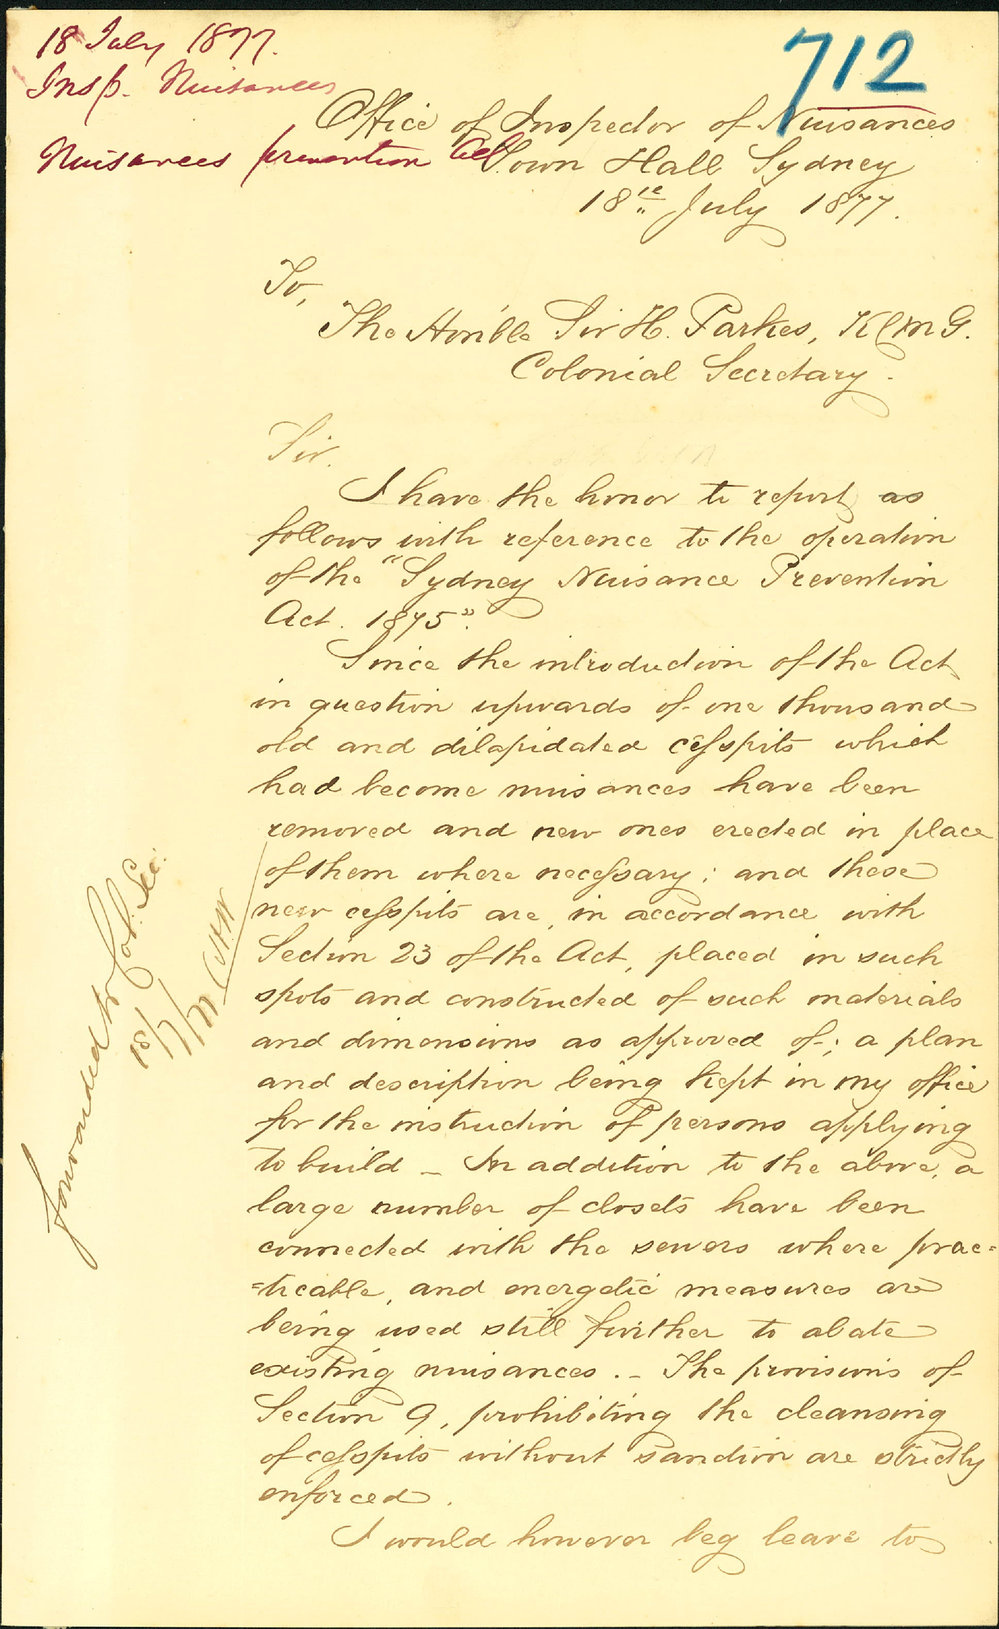 18 July 1877.
Insp. Nuisances
Nuisances prevention Act
712
Office of Inspector of Nuisances
Town Hall Sydney
18te July 1877.
To,
The Honble Sir H. Parkes, K C M G.
Colonial Secretary.
Sir.
I have the honor to report as
follows with reference to the operation
of the "Sydney Nuisance Prevention
Act. 1875".
Since the introduction of the Act
in question upwards of one thousand
old and dilapidated cesspits which
had become nuisances have been
removed and new ones erected in place
of them where necessary; and these
new cesspits are, in accordance with
Section 23 of the Act, placed in such
spots and constructed of such materials
and dimensions as approved of; a plan
and description being kept in my office
for the instruction of persons applying
to build _ In addition to the above, a
large number of closets have been
connected with the sewers where prac=
=ticable, and energetic measures are
being used still further to abate
existing nuisances. _ The provisions of
Section 9, prohibiting the cleansing
of cesspits without sanction are strictly
enforced.
I would however beg leave to
forwarded to Col. Sec.
18/7/77